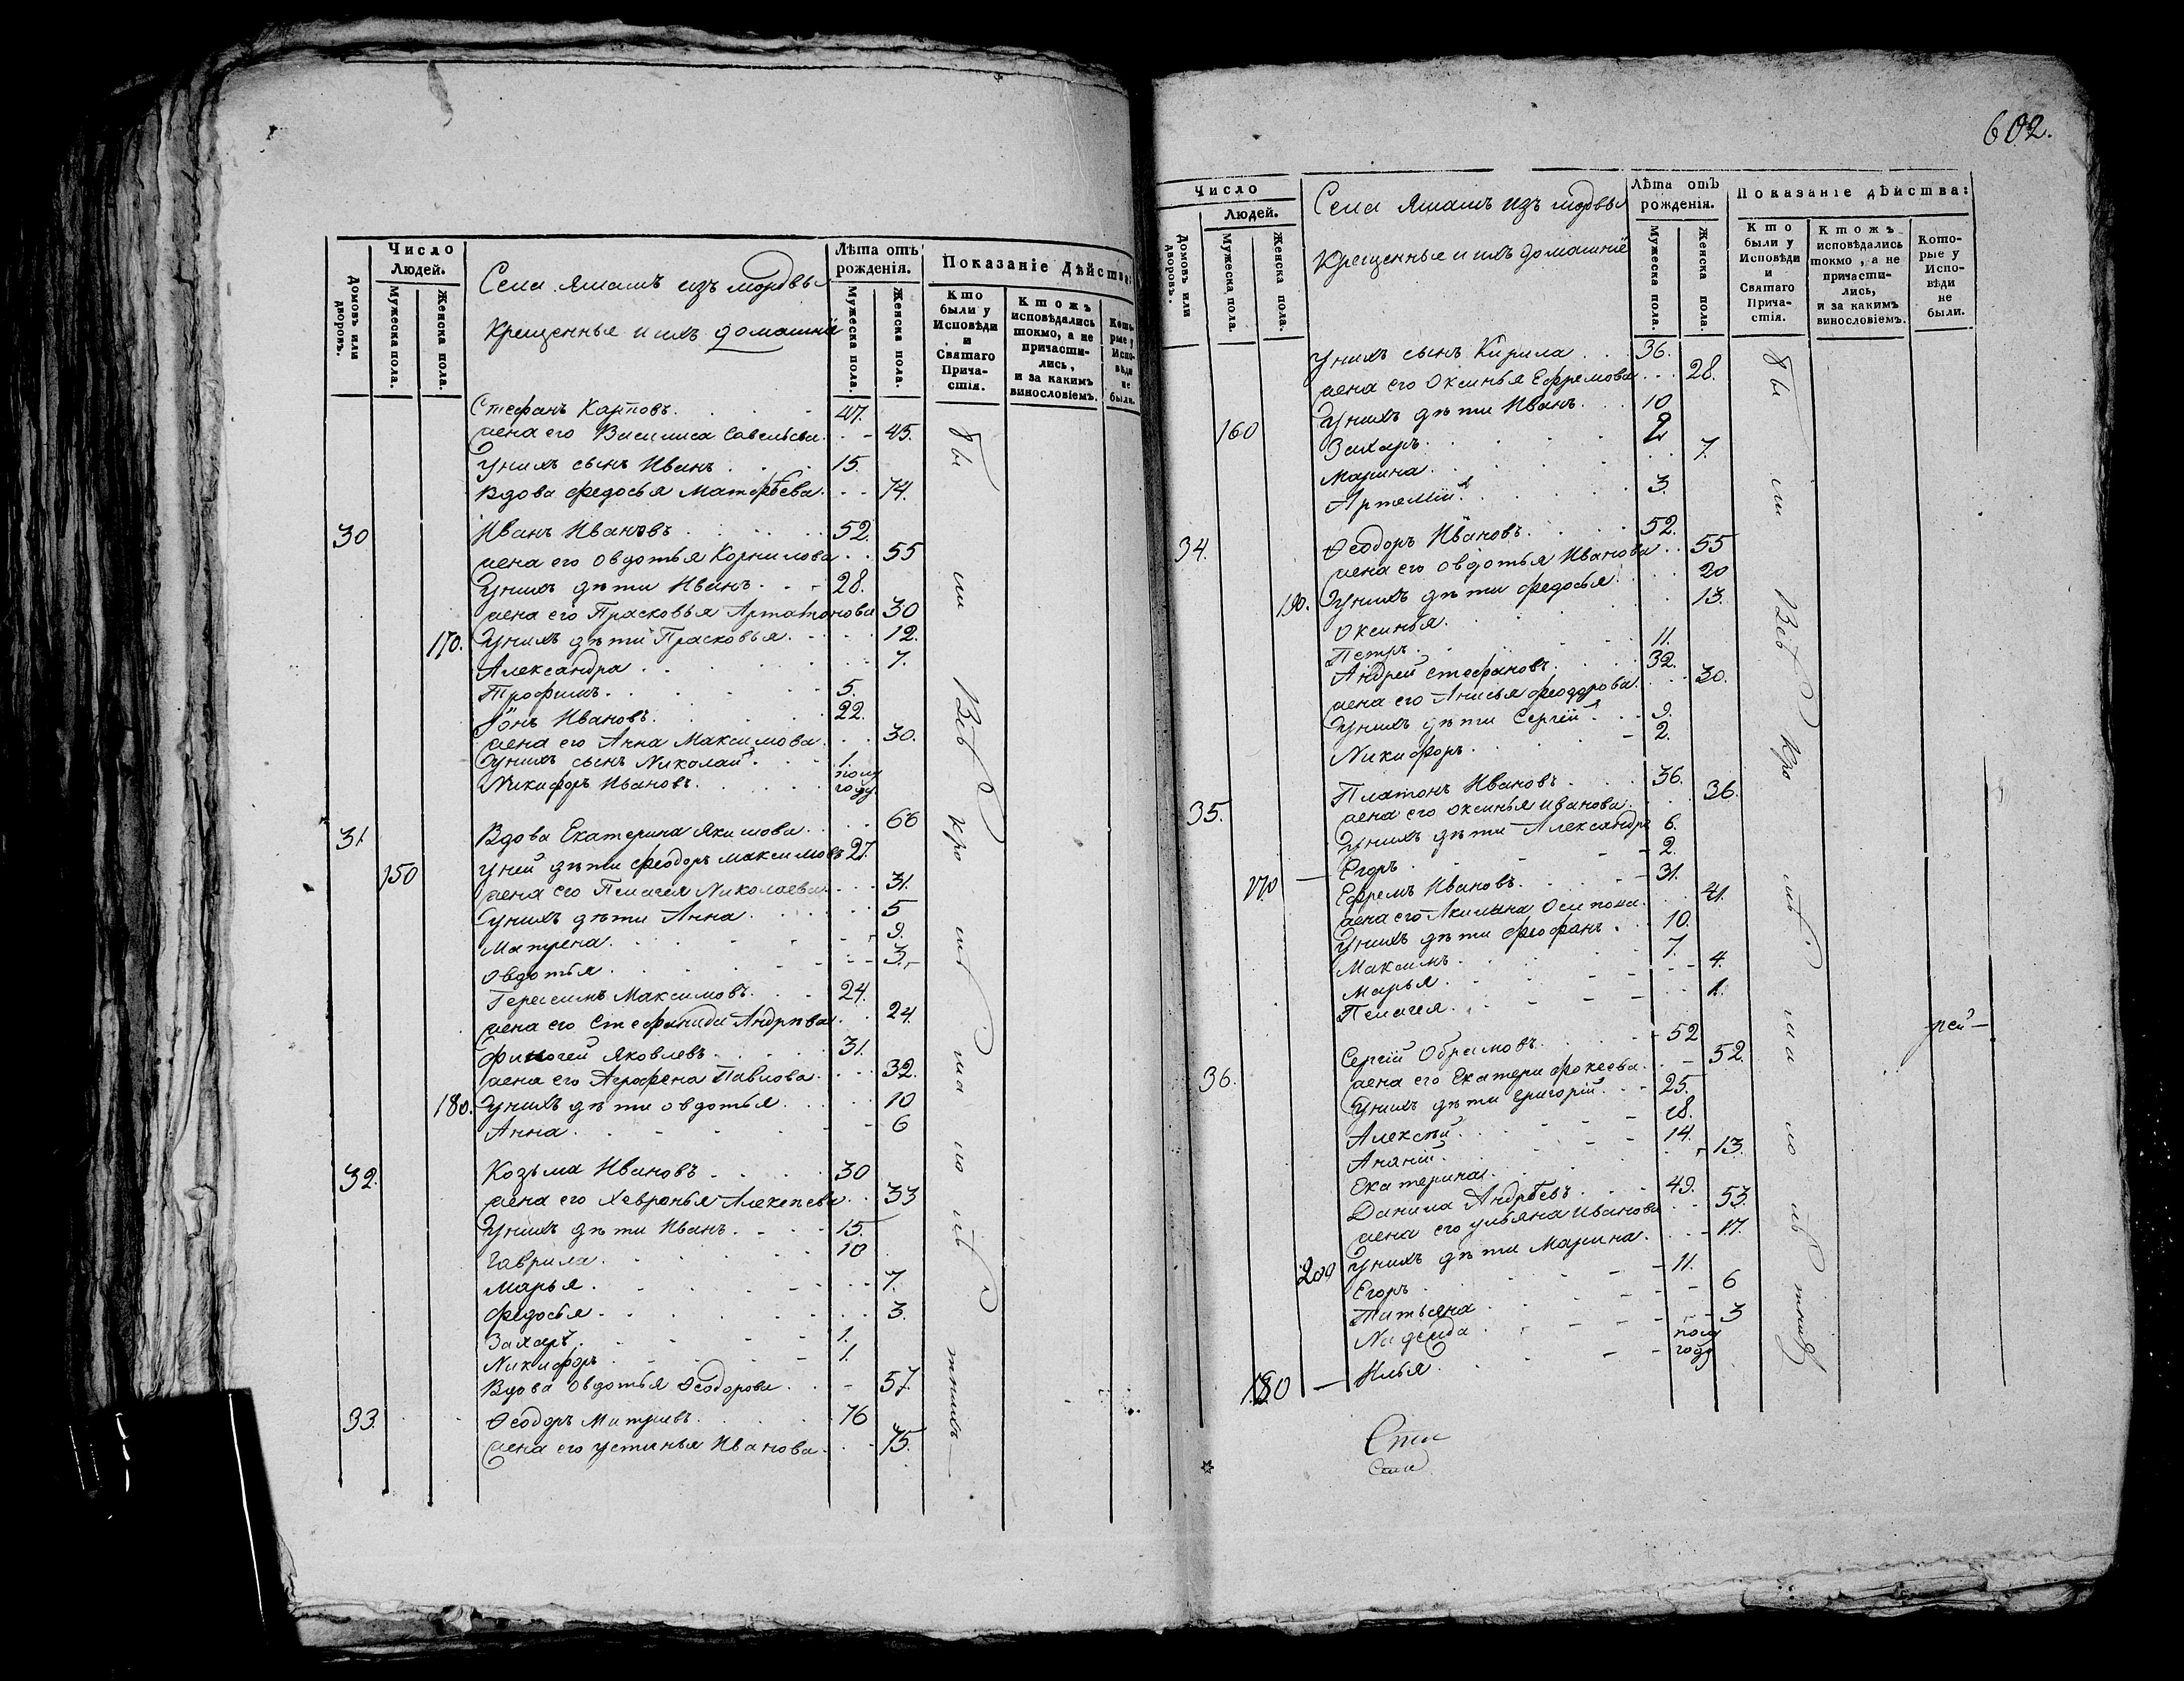 Число
Людей.
Домовъ или дворовъ.
Мужеска пола.
Женска пола.
Села Ямашъ изъ мордвы
Крещенныя и ихъ домашніе
Лѣта отъ рожденія.
Мужеска пола.
Женска пола.
Показаніе дѣйства:
Кто были у Исповѣди и Святаго Причастія.
Ктожъ исповѣдались токмо, а не причастились, и за какимъ винословіемъ.
Которые у Исповѣди не были.
Стефанъ Карповъ. 47.
жена его Василиса Савельева. 45.
У нихъ сынъ Иванъ. 15.
Вдова Федосья Матвѣева. 74.
30 Иванъ Ивановъ 52.
жена его Овдотья Корнилова 55
У нихъ дѣти Иванъ 28.
жена его Прасковья 30
170. У нихъ дѣти Прасковья. 12.
Александра 7.
Трофимъ. 5.
Іонъ Ивановъ. 22.
жена его Анна Максимова. 30.
У нихъ сынъ Николай 1.
Никифоръ Ивановъ. полу году.
31. Вдова Екатерина Якимова 66
150 У ней дѣти Феодоръ Максимовъ 27.
жена его Пелагея Николаева 31.
У нихъ дѣти Анна 5
Матрена. 9.
Овдотья. 3.
Герасимъ Максимовъ. 24.
жена его Стефанида Андрѣева 24.
Финогей Яковлевъ 31.
жена его Агрофена Павлова. 32.
180. У нихъ дѣти Овдотья. 10
Анна. 6
32. Козьма Ивановъ 30
жена его Хевронья Алексѣева 33
У нихъ дѣти Иванъ. 15.
Гаврила. 10
Марья. 7.
Федосья. 3.
Захаръ. 1.
Никифоръ 1.
Вдова Овдотья Ѳеодорова. 57.
33. Ѳеодоръ 76
жена его Устинья Иванова. 75.
бы ли Всѣ кро мѣ ма ло лѣ тнихъ
602.
Число
Людей.
Домовъ или дворовъ.
Мужеска пола.
Женска пола.
Села Ямашъ изъ мордвы
Крещенныя и ихъ домашніе
Лѣта отъ рожденія.
Мужеска пола.
Женска пола.
Показаніе дѣйства:
Кто были у Исповѣди и Святаго Причастія.
Ктожъ исповѣдались токмо, а не причастились, и за какимъ винословіемъ.
Которые у Исповѣди не были.
У нихъ сынъ Кирила 36.
жена его Оксинья Ефремова 28.
У нихъ дѣти Иванъ. 10
160 Захаръ. 2
Марина. 7.
Артемій. 3.
34. Ѳеодоръ Ивановъ. 52.
жена его Овдотья Иванова 55
190. У нихъ дѣти Федосья. 20
Оксинья. 13.
Петръ. 11.
Андрей Стефановъ. 32.
жена его Анисья Феодорова. 30.
У нихъ дѣти Сергѣй. 9.
Никифоръ. 2.
35. Платонъ Ивановъ 36.
жена его Оксинья Иванова 36.
У нихъ дѣти Александръ 6.
Егоръ 2.
170 Ефремъ Ивановъ. 31.
жена его Акилина Осипова. 41.
У нихъ дѣти Феофанъ. 10.
Максимъ 7.
Марья. 4.
Пелагея. 1.
36. Сергій Обрамовъ. 52
жена его Екатери Фокеева. 52.
У нихъ дѣти Григорій. 25.
Алексѣй. 18.
Ананій. 14.
Екатерина. 13.
Данила Андрѣевъ 49.
жена его Ульяна Иванова 53.
200 У нихъ дѣти Марина. 17.
Егоръ 11.
Татьяна 6
Надежда 3
180 Илья. полу году
бы ли Всѣ кро мѣ ма ло лѣ тнихъ
рей